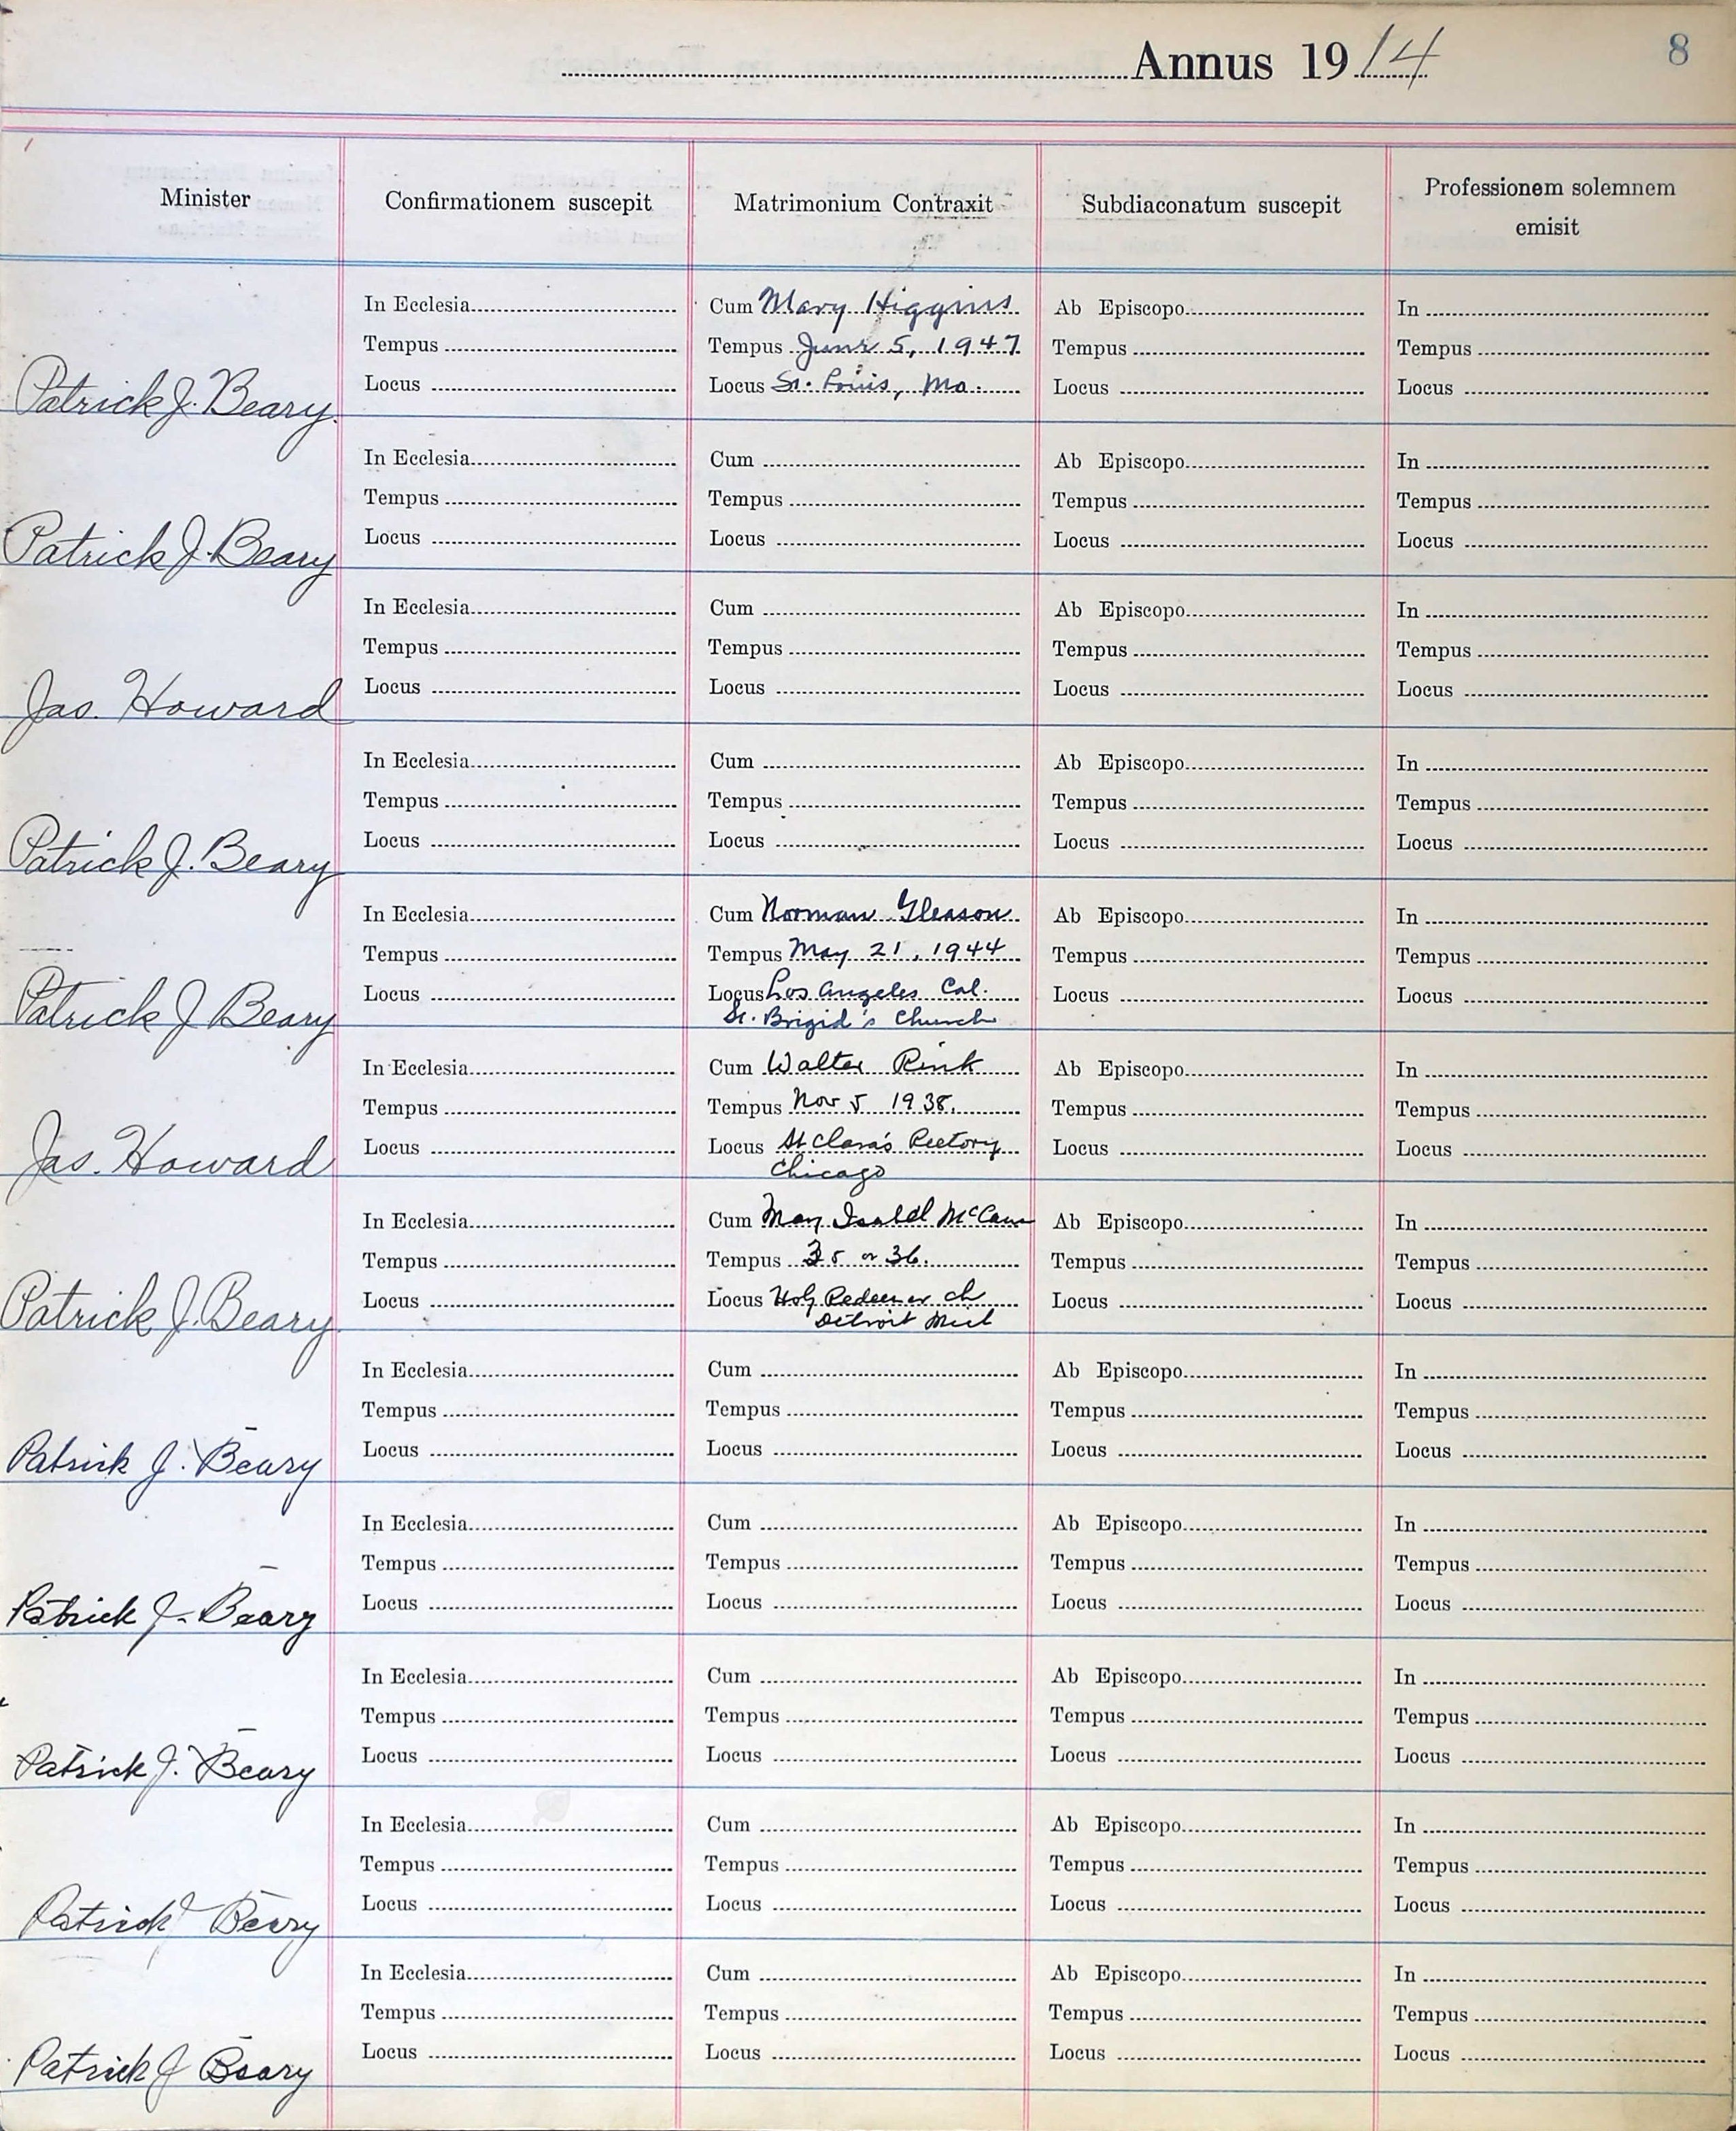 Annus 1914
8
Minister
Confirmationem suscepit
Matrimonium Contraxit
Subdiaconatum suscepit
Professionem solemnem
emisit
Patrick J. Beary.
In Ecclesia
Tempus
Locus
Cum Mary Higgins
Tempus June 5, 1947
Locus St. Louis, Mo.
Ab Episcopo
Tempus
Locus
In
Tempus
Locus
Patrick J. Beary
In Ecclesia
Tempus
Locus
Cum
Tempus
Locus
Ab Episcopo
Tempus
Locus
In
Tempus
Locus
Jas. Howard
In Ecclesia
Tempus
Locus
Cum
Tempus
Locus
Ab Episcopo
Tempus
Locus
In
Tempus
Locus
Patrick J. Beary
In Ecclesia
Tempus
Locus
Cum
Tempus
Locus
Ab Episcopo
Tempus
Locus
In
Tempus
Locus
Patrick J Beary
In Ecclesia
Tempus
Locus
Cum Norman Gleason
Tempus May 21, 1944
Locus Los Angeles Cal.
St. Brigid's Church
Ab Episcopo
Tempus
Locus
In
Tempus
Locus
Jas. Howard
In Ecclesia
Tempus
Locus
Cum Walter Rink
Tempus Nov 5 1938.
Locus St Clara's Rectory
Chicago
Ab Episcopo
Tempus
Locus
In
Tempus
Locus
Patrick J. Beary.
In Ecclesia
Tempus
Locus
Cum Mary Isabel McCann
Tempus 35 or 36.
Locus Holy Redeemer ch
Detroit Mich
Ab Episcopo
Tempus
Locus
In
Tempus
Locus
Patrick J. Beary
In Ecclesia
Tempus
Locus
Cum
Tempus
Locus
Ab Episcopo
Tempus
Locus
In
Tempus
Locus
Patrick J. Beary
In Ecclesia
Tempus
Locus
Cum
Tempus
Locus
Ab Episcopo
Tempus
Locus
In
Tempus
Locus
Patrick J. Beary
In Ecclesia
Tempus
Locus
Cum
Tempus
Locus
Ab Episcopo
Tempus
Locus
In
Tempus
Locus
Patrick J Beary
In Ecclesia
Tempus
Locus
Cum
Tempus
Locus
Ab Episcopo
Tempus
Locus
In
Tempus
Locus
Patrick J Beary
In Ecclesia
Tempus
Locus
Cum
Tempus
Locus
Ab Episcopo
Tempus
Locus
In
Tempus
Locus